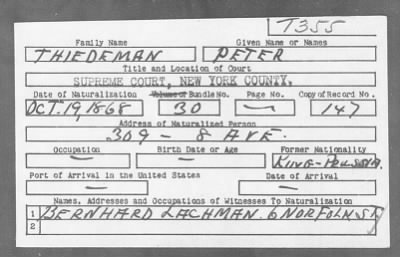 T355
Family Name Given Name or Names
THIEDEMAN PETER
Title and Location of Court
SUPREME COURT, NEW YORK COUNTY.
Date of Naturalization Volume or Bundle No. Page No. Copy of Record No.
OCT. 19, 1868 30 — 147
Address of Naturalized Person
309 - 8 AVE.
Occupation Birth Date or Age Former Nationality
— — KING-PRUSSIA.
Port of Arrival in the United States Date of Arrival
— —
Names, Addresses and Occupations of Witnesses To Naturalization
1 BERNHARD LACHMAN. 6 NORFOLK ST
2